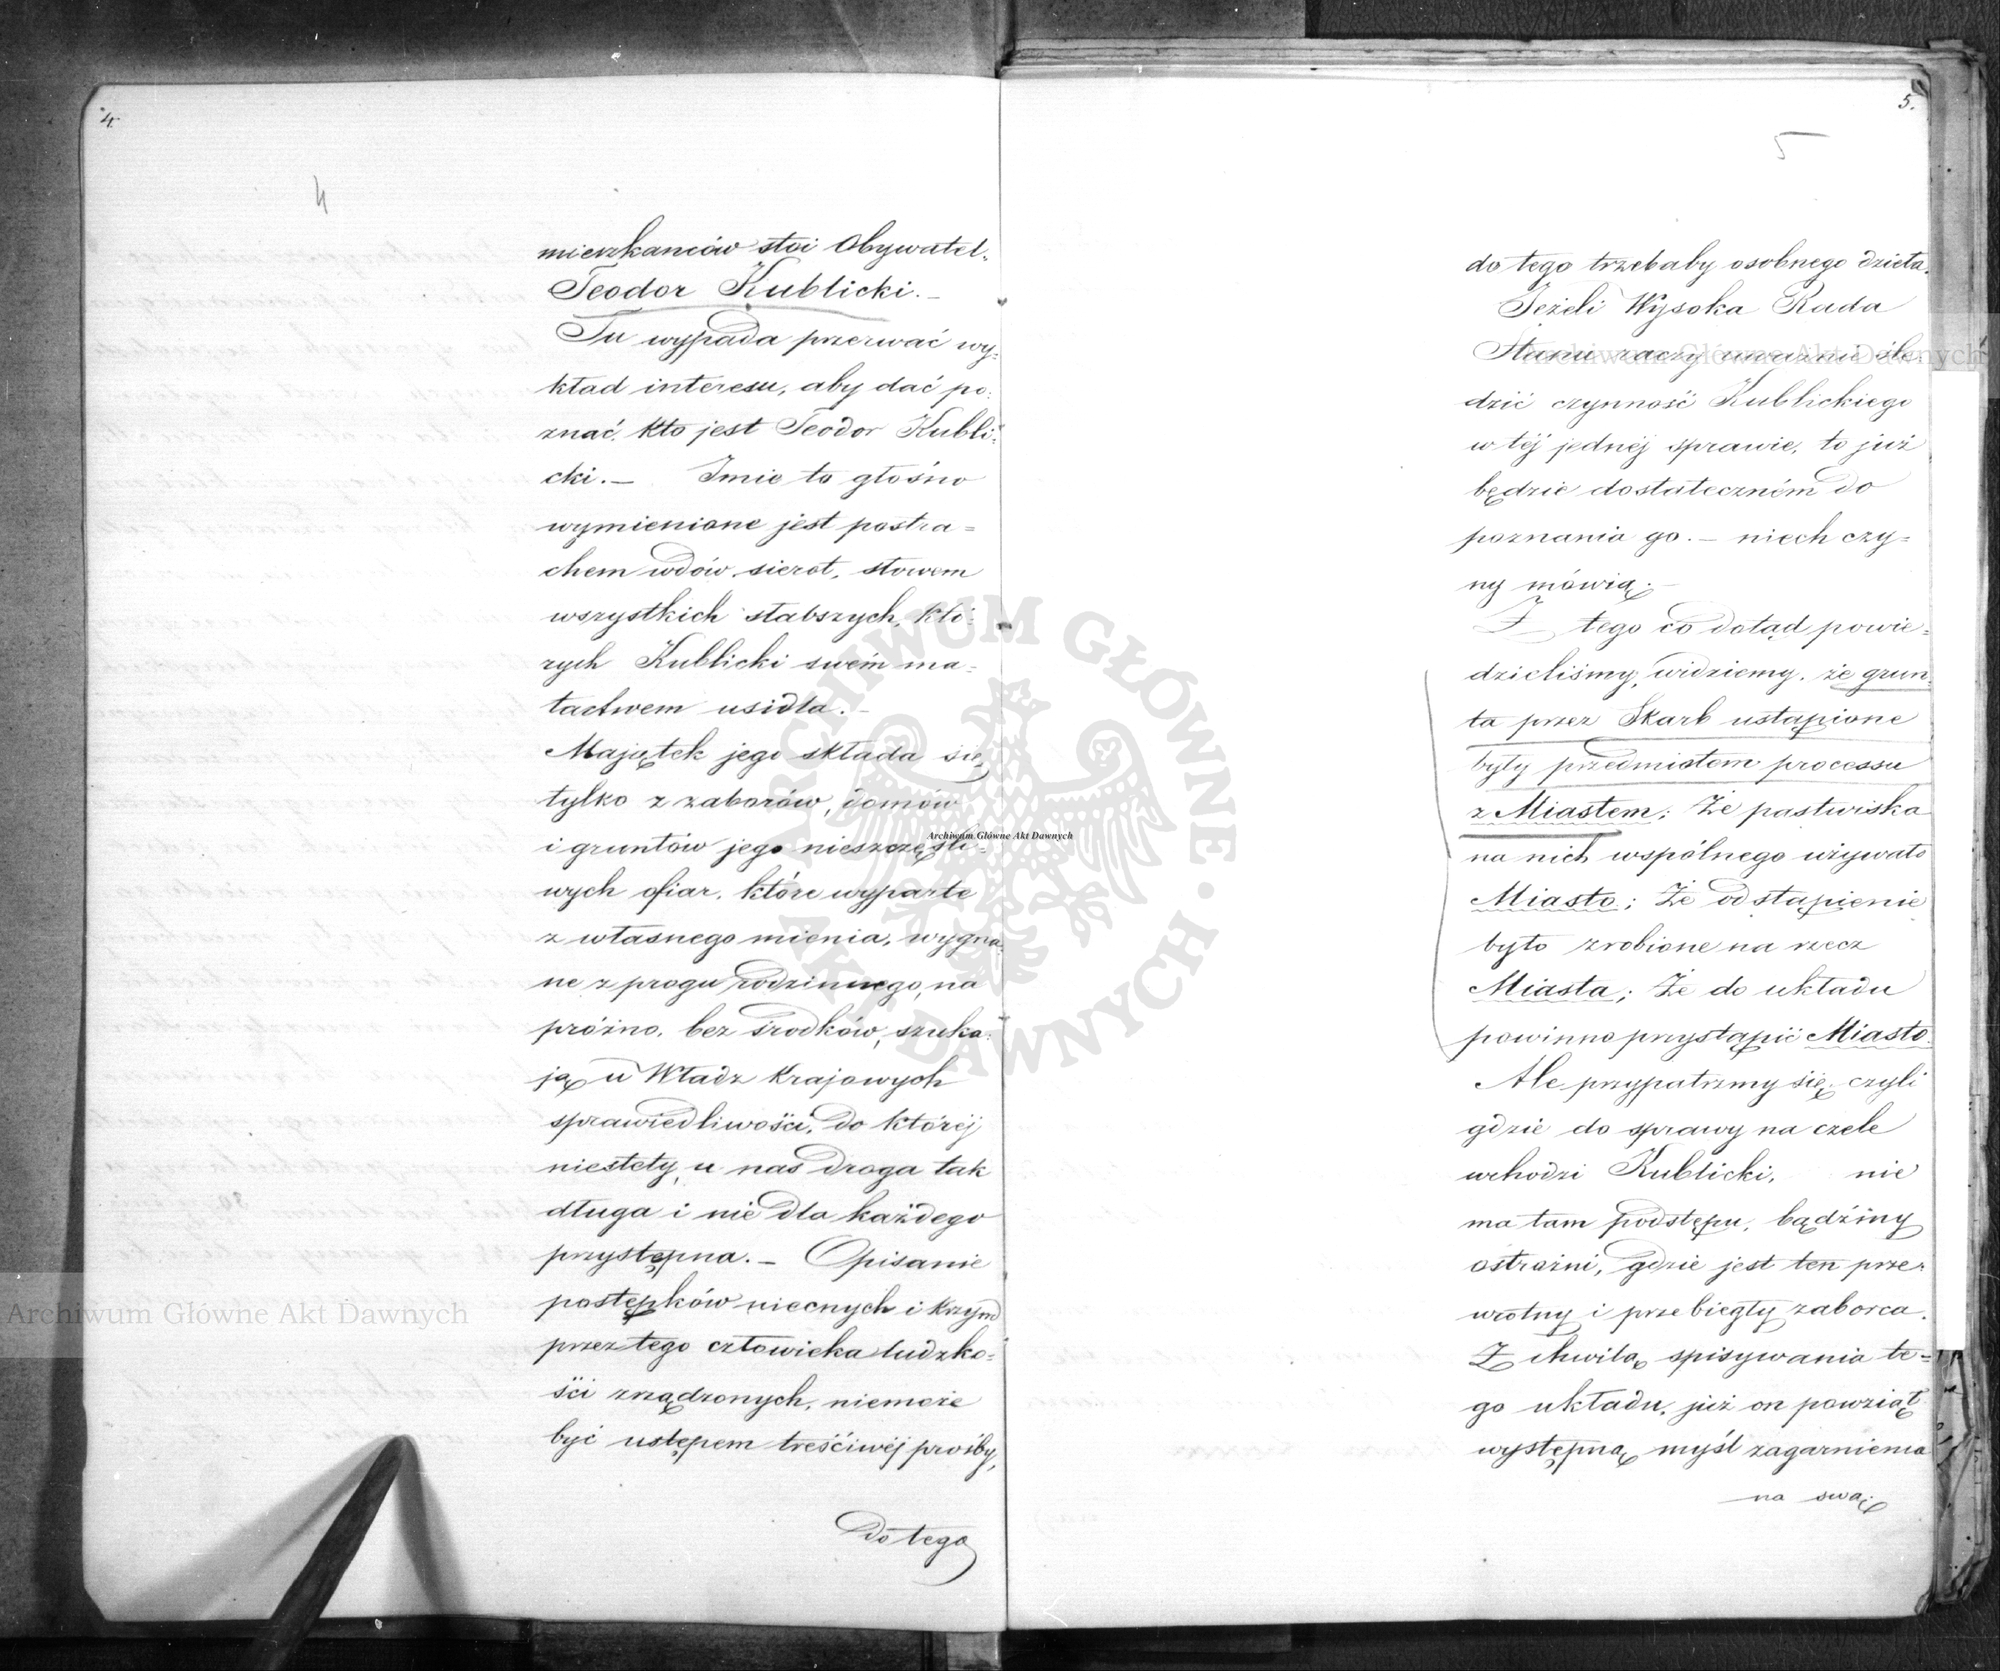 4.
4
mieszkańców stoi Obywatel-
Teodor Kublicki. –
Tu wypada przerwać wy-
kład interesu, aby dać po-
znać, kto jest Teodor Kubli-
cki. – Imie to głośno
wymienione jest postra=
chem wdów, sierot, słowem
wszystkich słabszych, któ-
rych Kublicki swém ma-
tactwem usidla. –
Majątek jego składa się
tylko z zaborów, domów
i gruntów jego nieszczęśli-
wych ofiar, które wyparte
z własnego mienia, wygna-
ne z progu rodzinnego, na
próżno, bez środków, szuka-
ją u Władz Krajowych
sprawiedliwości, do którój
niestety, u nas droga tak
długa i nie dla każdego
przystępna. – Opisanie
postępków niecnych i krzywd
przez tego człowieka ludzko-
ści zrządzonych, niemoże
być ustępem treściwéj prośby,
do tego
5.
5
do tego trzebaby osobnego dzieła.
Jeżeli Wysoka Rada
Stanu raczy uważnie śle-
dzić czynność Kublickiego
w téj jednéj sprawie, to już
będzie dostateczném do
poznania go. – niech czy=
ny mówią. –
Z tego co dotąd powie-
dzieliśmy, widziemy, że grun-
ta przez Skarb ustąpione
były przedmiotem processu
z Miastem; Że pastwiska
na nich wspólnego używało
Miasto; Że odstąpienie
było zrobione na rzecz
Miasta; Że do układu
powinno przystąpić Miasto.
Ale przypatrzmy się, czyli
gdzie do sprawy na czele
wchodzi Kublicki, nie
ma tam podstępu, bądźmy
ostrożni, gdzie jest ten prze-
wrotny i przebiegły zaborca.
Z chwilą spisywania te-
go układu, już on powziął
występną myśl zagarnienia
na swą
Archiwum Główne Akt Dawnych
Archiwum Główne Akt Dawnych
Archiwum Główne Akt Dawnych
ARCHIWUM GŁÓWNE · AKT DAWNYCH ·